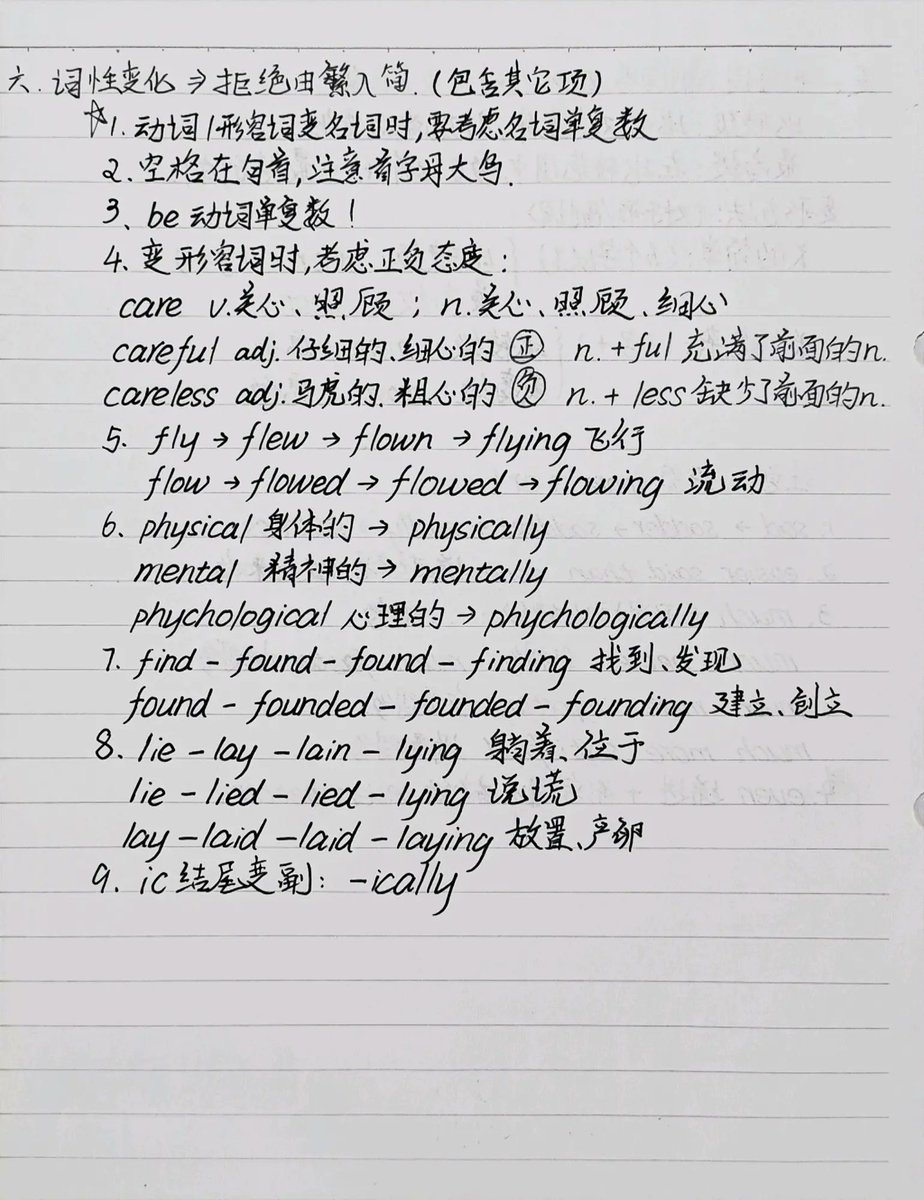 六.词性变化⇒拒绝由繁入简.(包含其它项)
☆1.动词/形容词变名词时,要考虑名词单复数
2.空格在句首,注意首字母大写.
3、be动词单复数!
4.变形容词时,考虑正负态度:
care v.关心、照顾; n.关心、照顾、细心
careful adj.仔细的、细心的 正 n.+ful充满了前面的n.
careless adj.马虎的、粗心的 负 n.+less缺少了前面的n.
5. fly→flew→flown→flying飞行
flow→flowed→flowed→flowing 流动
6. physical身体的→physically
mental 精神的→mentally
phychological心理的→phychologically
7. find-found-found-finding 找到、发现
found-founded-founded-founding 建立、创立
8. lie-lay-lain-lying 躺着、位于
lie-lied-lied-lying说谎
lay-laid-laid-laying放置、产卵
9. ic结尾变副:-ically